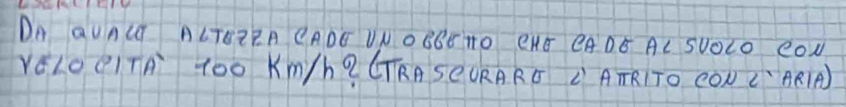 ESERCIZIO
DA QUALE ALTEZZA CADE UN OGGETTO CHE CADE AL SUOLO CON
VELOCITÀ 100 Km/h? (TRASCURARE L'ATTRITO CON L'ARIA)